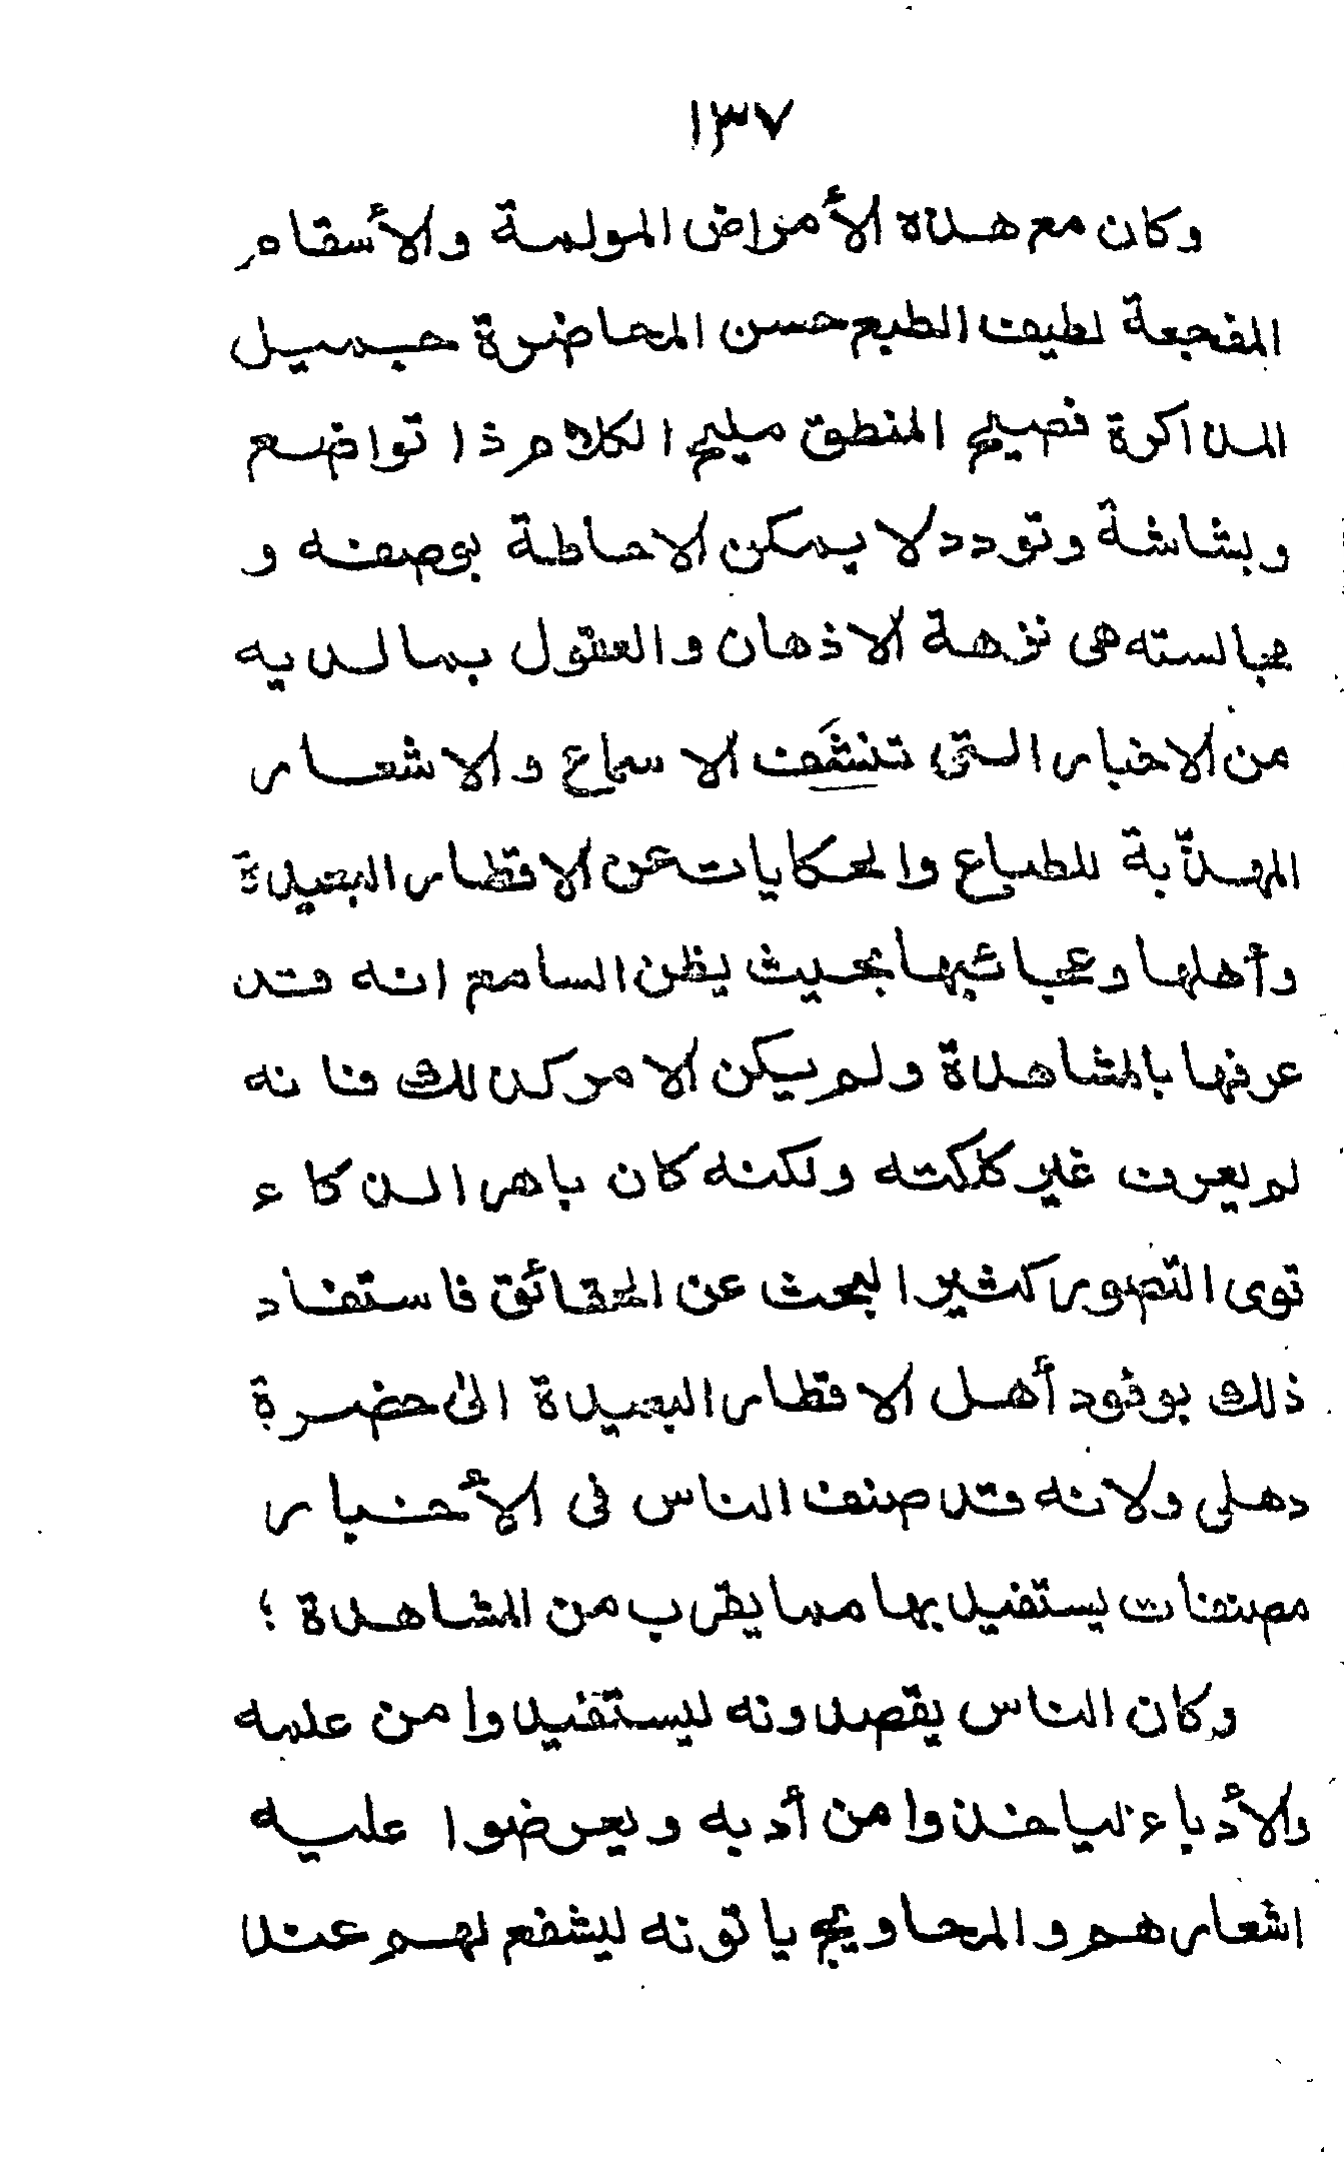 ١٣٧
وكان مع هذه الأمراض المولمة والأسقام
المفجعة لطيف الطبع حسن المحاضرة جميل
المذاكرة فصيح المنطق مليح الكلام ذا تواضع
وبشاشة وتودد لا يمكن الاحاطة بوصفه و
مجالسته هى نزهة الاذهان والعقول بما لديه
من الاخبار التى تنشَّف الاسماع والاشعار
المهذّبة للطباع والحكايات عن الاقطار البعيدة
وأهلها وعجائبها بحيث يظن السامع انه قد
عرفها بالمشاهدة ولم يكن الامر كذلك فانه
لم يعرف غير كلكته ولكنه كان باهر الذكاء
قوى التصور كثير البحث عن الحقائق فاستفاد
ذلك بوفود أهل الاقطار البعيدة الى حضرة
دهلى ولانه قد صنف الناس فى الأخبار
مصنفات يستفيد بها مما يقرب من المشاهدة ؛
وكان الناس يقصدونه ليستفيدوا من علمه
والأدباء لياخذوا من أدبه ويعرضوا عليه
اشعارهم والمحاويج ياتونه ليشفع لهم عند